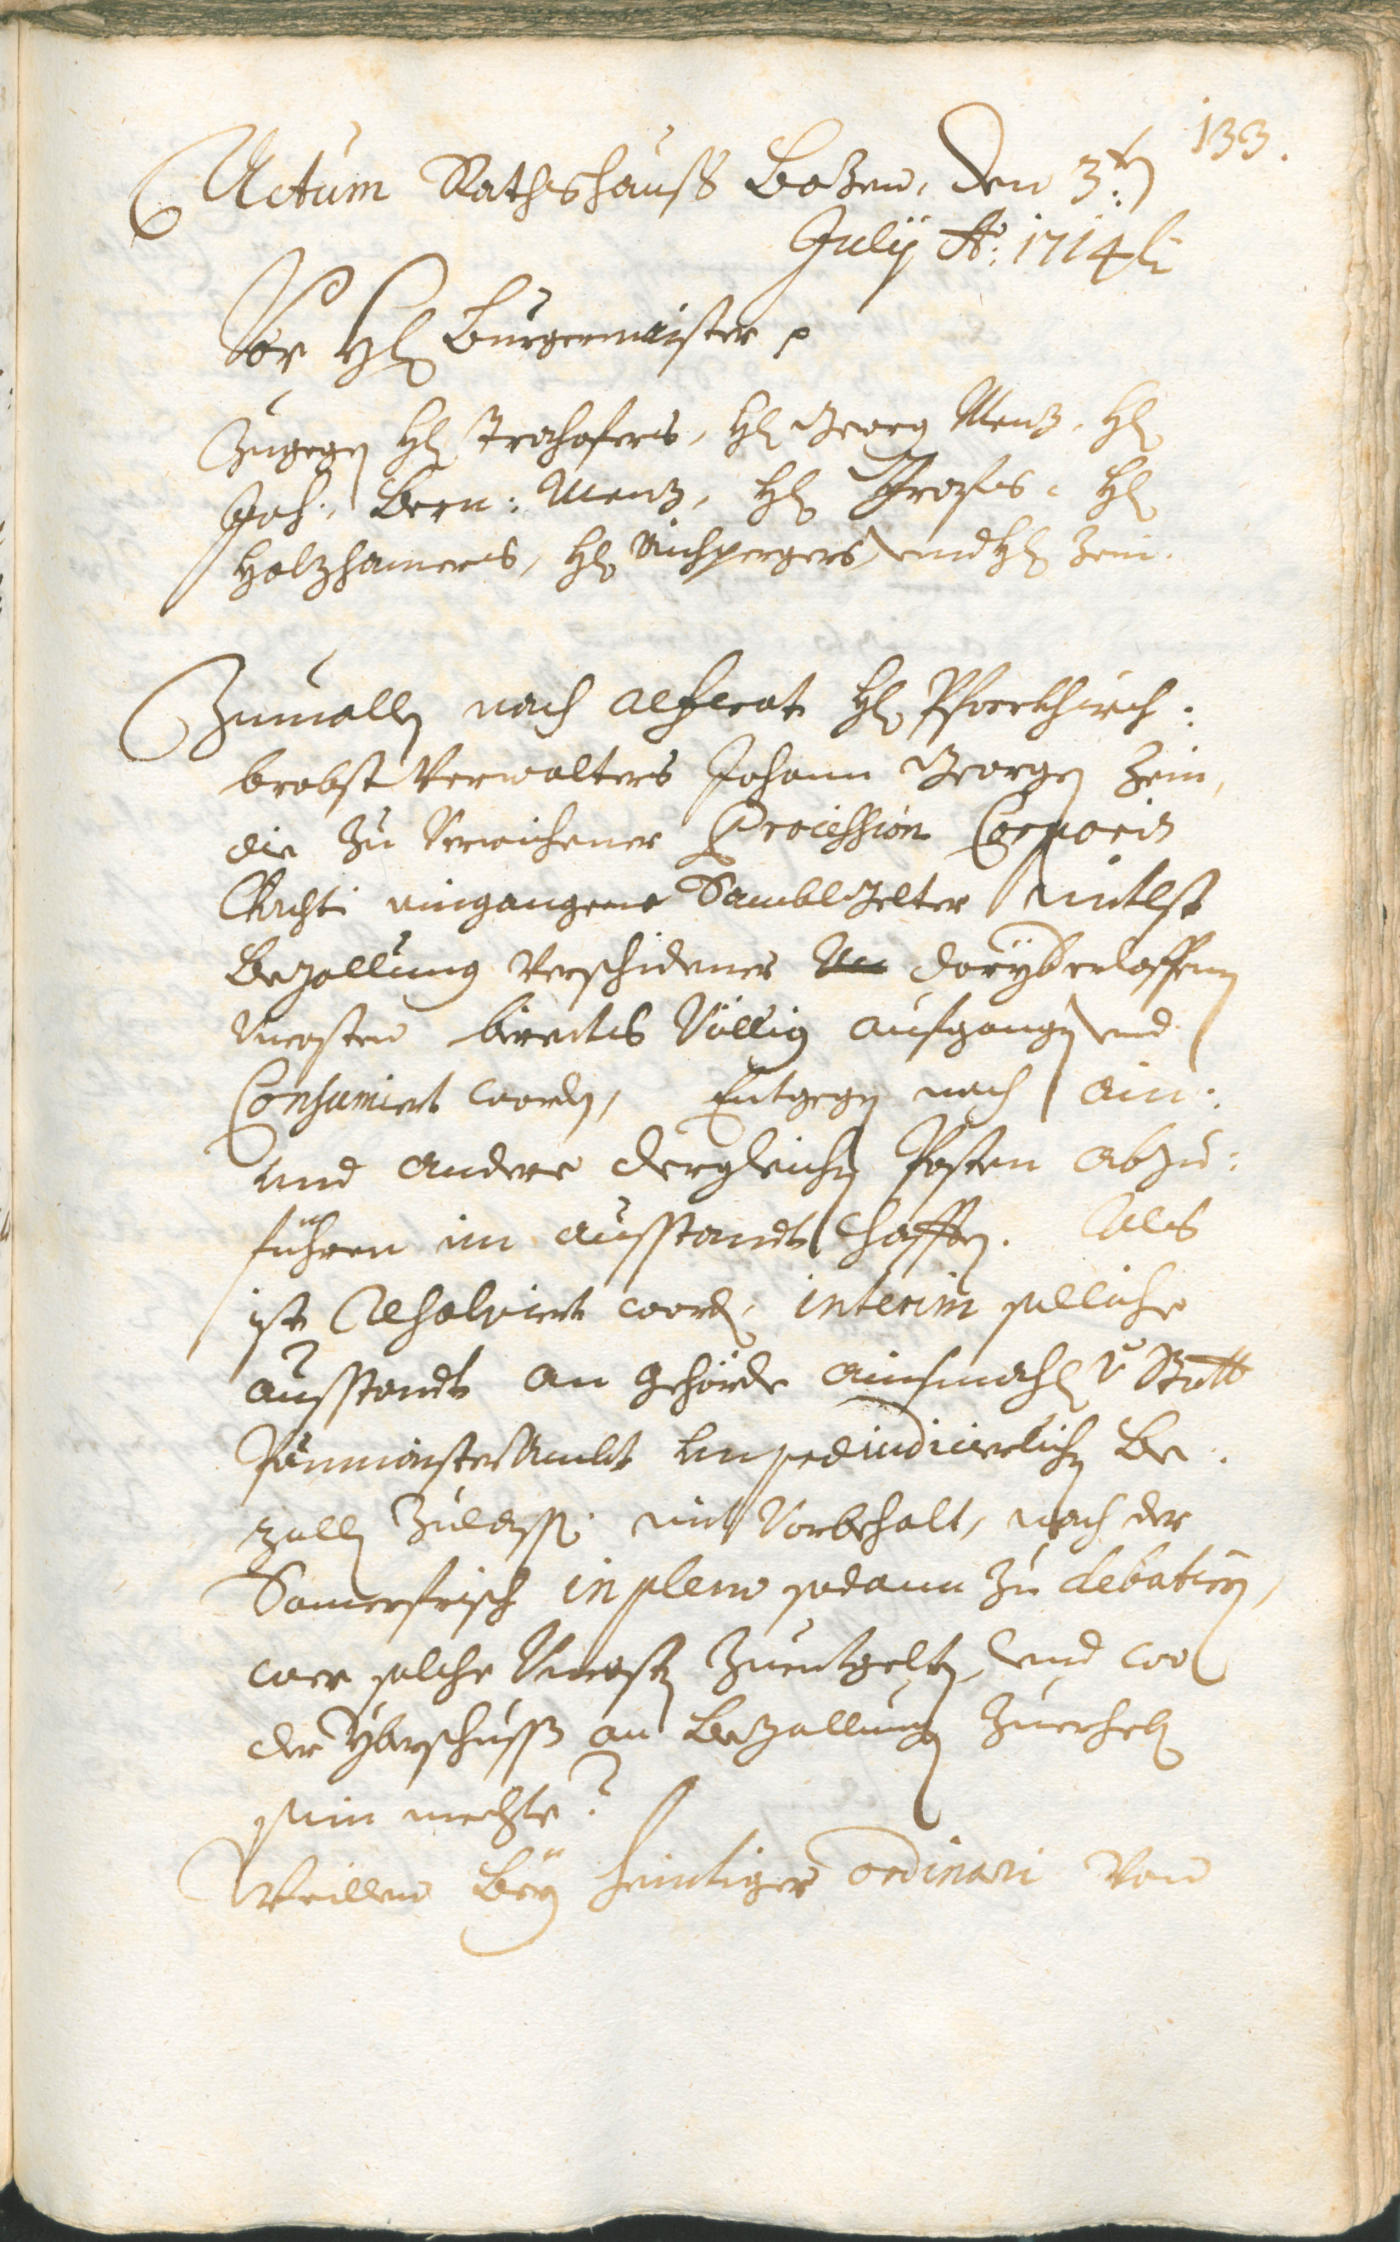 133.
Actum Rathshauß Bozen, den 3t:
July Ao: 1714
Vor H: Burgermaister p
Zugegen H: Trohofers, H: Georg Menz, H:
Joh: Bern: Menz, H: Grafes, H:
Holzhamers, H: Aichpergers, und H: Zein.
Zumallen nach Referat H: Pfarrkhirch:
brobst Verwalters Johann Georgen Zein,
die zu verwichener Procession Corporis
Christi eingangene Sambl Gelter mitlst
Bezallung verschidener daryberloffenen
Uncosten bereits völlig aufgangen, und
Consumiert worden, Entgegen noch ain:
und andere dergleichen Posten abzu:
führen im ausstandt hafften. Als
ist Resolviert worden, interim selliche
ausstandt an gehörde ainsmahls Statt
Paumaister Ambt unpreiudicierlichen Be:
zallen zulassen. mit Vorbehalt, nach der
Somerfrisch in pleno sodann zu debatiern,
wer solche Uncosten zuentgelten, und wo
der yberschuss an Bezallung zuerheben
sein mechte?
Weillen bey heintiger ordinari von